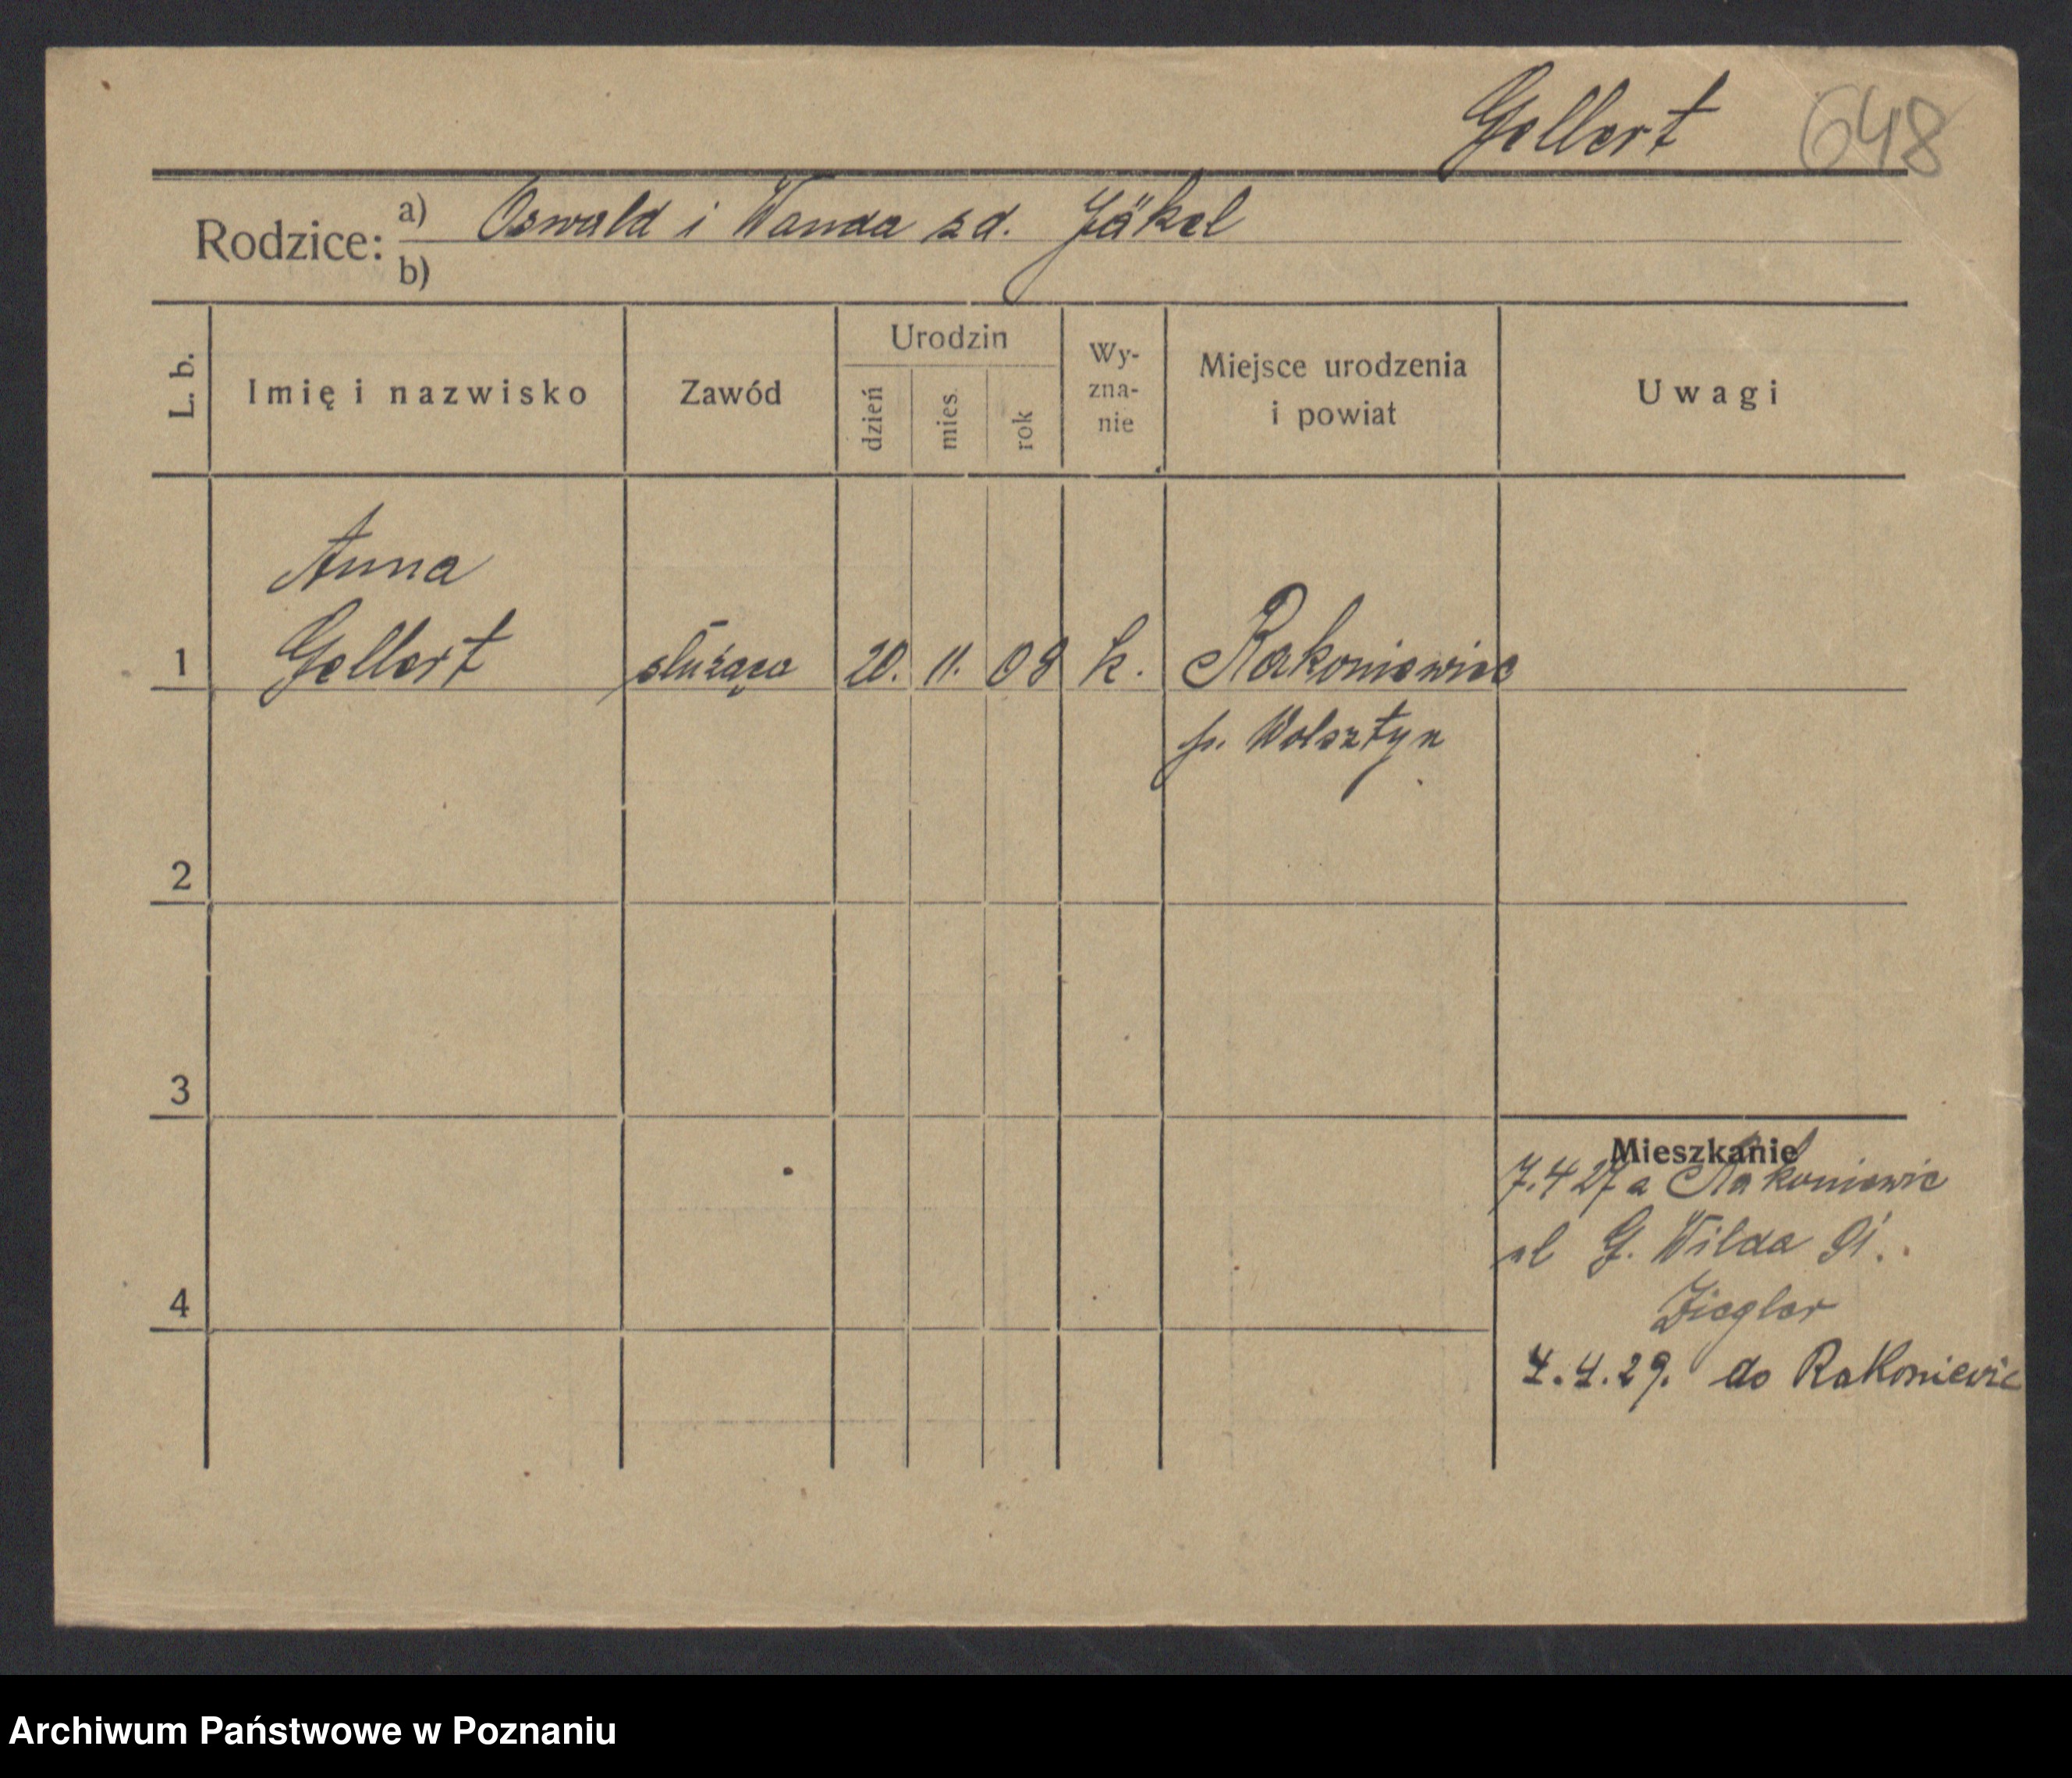 Gellert 648
Rodzice: a) Oswald i Wanda zd. Jäkel
b)
L. b. Imię i nazwisko Zawód Urodzin dzień mies. rok Wy-zna-nie Miejsce urodzenia i powiat Uwagi
Anna
1 Gellert służąca 20. 11. 08 k. Rakoniewice
p. Wolsztyn
2
3
Mieszkanie
7.4 27 a Rakoniewic
G. Wilda 91.
4 Ziegler
4.4.29. do Rakoniewic
Archiwum Państwowe w Poznaniu